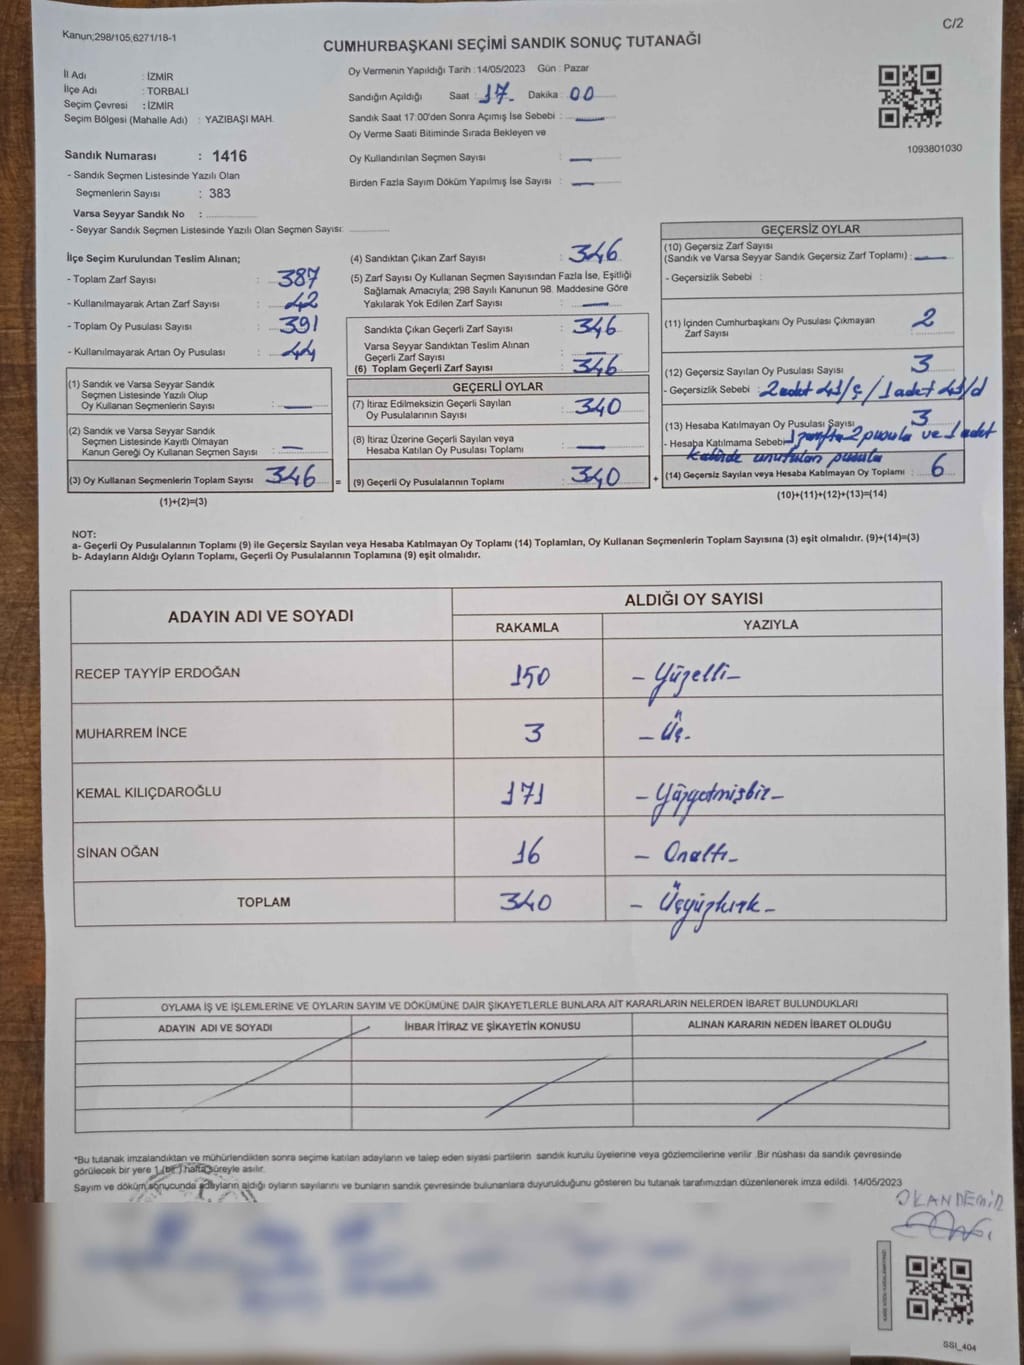 Kanun;298/105;6271/18-1
C/2
CUMHURBAŞKANI SEÇİMİ SANDIK SONUÇ TUTANAĞI
İl Adı : İZMİR
İlçe Adı : TORBALI
Seçim Çevresi : İZMİR
Seçim Bölgesi (Mahalle Adı) : YAZIBAŞI MAH.
Sandık Numarası : 1416
- Sandık Seçmen Listesinde Yazılı Olan
Seçmenlerin Sayısı : 383
Varsa Seyyar Sandık No :
- Seyyar Sandık Seçmen Listesinde Yazılı Olan Seçmen Sayısı:
Oy Vermenin Yapıldığı Tarih : 14/05/2023 Gün : Pazar
Sandığın Açıldığı Saat : 17- Dakika : 00
Sandık Saat 17:00'den Sonra Açımış İse Sebebi : —
Oy Verme Saati Bitiminde Sırada Bekleyen ve
Oy Kullandırılan Seçmen Sayısı : —
Birden Fazla Sayım Döküm Yapılmış İse Sayısı : —
1093801030
İlçe Seçim Kurulundan Teslim Alınan;
- Toplam Zarf Sayısı : 387
- Kullanılmayarak Artan Zarf Sayısı : 42
- Toplam Oy Pusulası Sayısı : 391
- Kullanılmayarak Artan Oy Pusulası : 44
(1) Sandık ve Varsa Seyyar Sandık
Seçmen Listesinde Yazılı Olup
Oy Kullanan Seçmenlerin Sayısı : —
(2) Sandık ve Varsa Seyyar Sandık
Seçmen Listesinde Kayıtlı Olmayan
Kanun Gereği Oy Kullanan Seçmen Sayısı : —
(3) Oy Kullanan Seçmenlerin Toplam Sayısı : 346 =
(1)+(2)=(3)
(4) Sandıktan Çıkan Zarf Sayısı : 346
(5) Zarf Sayısı Oy Kullanan Seçmen Sayısından Fazla İse, Eşitliği
Sağlamak Amacıyla; 298 Sayılı Kanunun 98. Maddesine Göre
Yakılarak Yok Edilen Zarf Sayısı : —
Sandıkta Çıkan Geçerli Zarf Sayısı : 346
Varsa Seyyar Sandıktan Teslim Alınan
Geçerli Zarf Sayısı : —
(6) Toplam Geçerli Zarf Sayısı : 346
GEÇERLİ OYLAR
(7) İtiraz Edilmeksizin Geçerli Sayılan
Oy Pusulalarının Sayısı : 340
(8) İtiraz Üzerine Geçerli Sayılan veya
Hesaba Katılan Oy Pusulası Toplamı : —
(9) Geçerli Oy Pusulalarının Toplamı : 340 +
GEÇERSİZ OYLAR
(10) Geçersiz Zarf Sayısı
(Sandık ve Varsa Seyyar Sandık Geçersiz Zarf Toplamı) : —
- Geçersizlik Sebebi :
(11) İçinden Cumhurbaşkanı Oy Pusulası Çıkmayan
Zarf Sayısı : 2
(12) Geçersiz Sayılan Oy Pusulası Sayısı : 3
- Geçersizlik Sebebi : 2 adet 43/ç / 1 adet 43/d
(13) Hesaba Katılmayan Oy Pusulası Sayısı : 3
- Hesaba Katılmama Sebebi : 1 zarfta 2 pusula ve 1 adet
kabinde unutulan pusula
(14) Geçersiz Sayılan veya Hesaba Katılmayan Oy Toplamı : 6
(10)+(11)+(12)+(13)=(14)
NOT:
a- Geçerli Oy Pusulalarının Toplamı (9) ile Geçersiz Sayılan veya Hesaba Katılmayan Oy Toplamı (14) Toplamları, Oy Kullanan Seçmenlerin Toplam Sayısına (3) eşit olmalıdır. (9)+(14)=(3)
b- Adayların Aldığı Oyların Toplamı, Geçerli Oy Pusulalarının Toplamına (9) eşit olmalıdır.
ADAYIN ADI VE SOYADI ALDIĞI OY SAYISI
RAKAMLA YAZIYLA
RECEP TAYYİP ERDOĞAN 150 - Yüzelli -
MUHARREM İNCE 3 - Üç -
KEMAL KILIÇDAROĞLU 171 - Yüzyetmişbir -
SİNAN OĞAN 16 - Onaltı -
TOPLAM 340 - Üçyüzkırk -
OYLAMA İŞ VE İŞLEMLERİNE VE OYLARIN SAYIM VE DÖKÜMÜNE DAİR ŞİKAYETLERLE BUNLARA AİT KARARLARIN NELERDEN İBARET BULUNDUKLARI
ADAYIN ADI VE SOYADI İHBAR İTİRAZ VE ŞİKAYETİN KONUSU ALINAN KARARIN NEDEN İBARET OLDUĞU
*Bu tutanak imzalandıktan ve mühürlendikten sonra seçime katılan adayların ve talep eden siyasi partilerin sandık kurulu üyelerine veya gözlemcilerine verilir. Bir nüshası da sandık çevresinde
görülecek bir yere 1 (bir) hafta süreyle asılır.
Sayım ve döküm sonucunda adayların aldığı oyların sayılarını ve bunların sandık çevresinde bulunanlara duyurulduğunu gösteren bu tutanak tarafımızdan düzenlenerek imza edildi. 14/05/2023
OKAN DEMİR
SSI_404